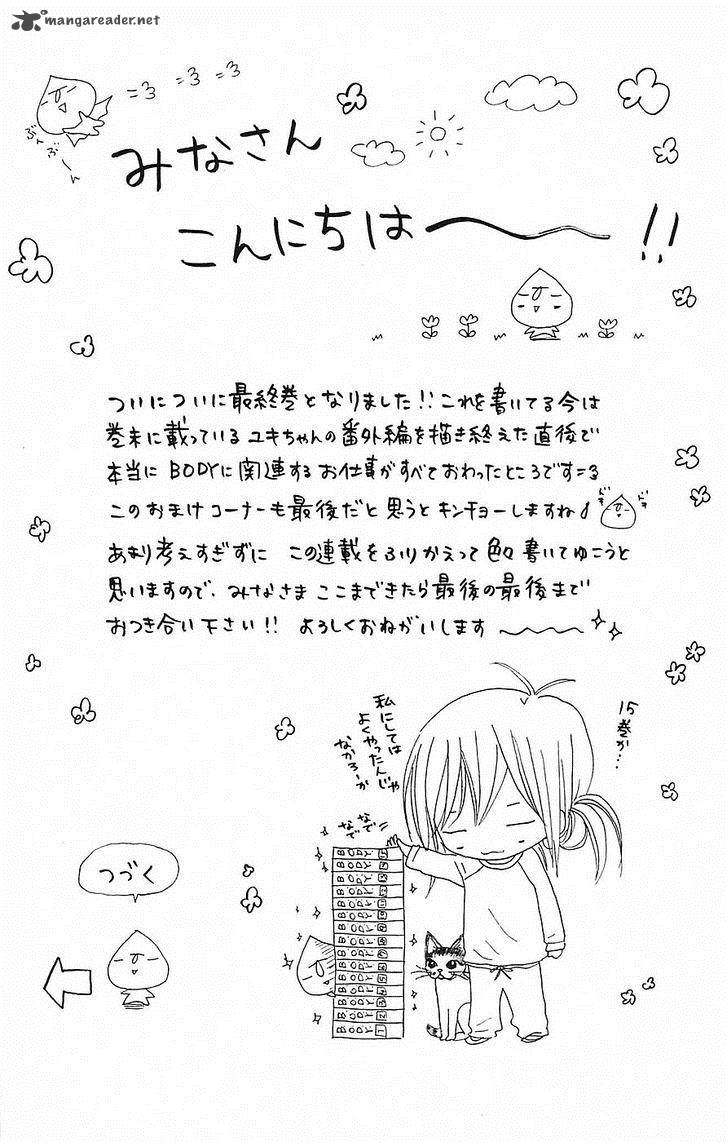 mangareader.net
=3 =3 =3
ぶーん
ぶーん
みなさん
こんにちは〜!!
ついについに最終巻となりました!!これを書いてる今は
巻末に載っているユキちゃんの番外編を描き終えた直後で
本当にBODYに関連するお仕事がすべておわったところです=3
このおまけコーナーも最後だと思うとキンチョーしますね♪
ドキ
ドキ
あまり考えすぎずに この連載をふりかえって色々書いてゆこうと
思いますので、みなさま ここまできたら最後の最後まで
おつき合い下さい!! よろしくおねがいします〜
15巻か…
私にしては
よくやったんじゃ
なかろーか
なで
なで
BODY 15
BODY 14
BODY 13
BODY 12
BODY 11
BODY 10
BODY 9
BODY 8
BODY 7
BODY 6
BODY 5
BODY 4
BODY 3
BODY 2
BODY 1
つづく